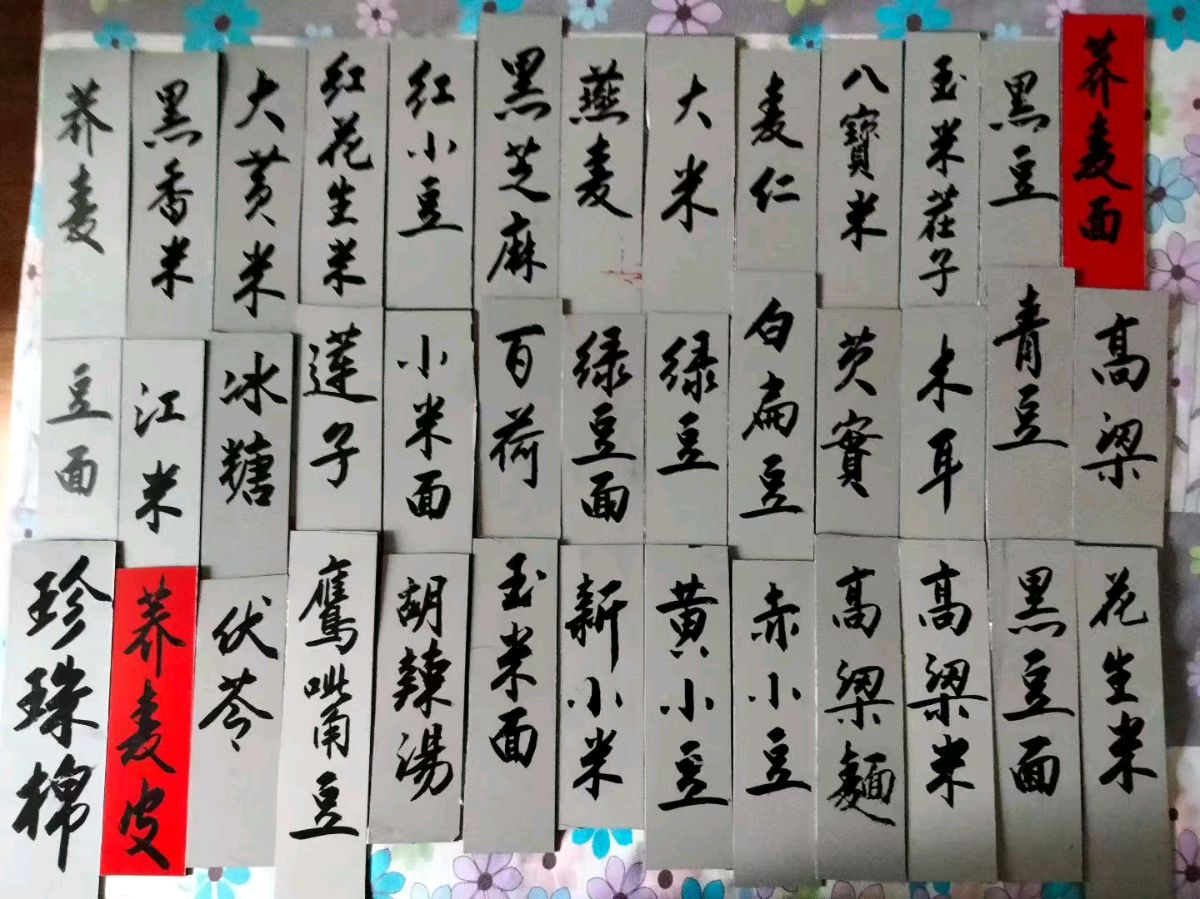 荞麦
黑香米
大黄米
红花生米
红小豆
黑芝麻
燕麦
大米
麦仁
八寶米
玉米茬子
黑豆
荞麦面
豆面
江米
冰糖
莲子
小米面
百荷
绿豆面
绿豆
白扁豆
芡實
木耳
青豆
高梁
珍珠棉
荞麦皮
伏苓
鹰嘴豆
胡辣湯
玉米面
新小米
黄小豆
赤小豆
高梁麵
高梁米
黑豆面
花生米